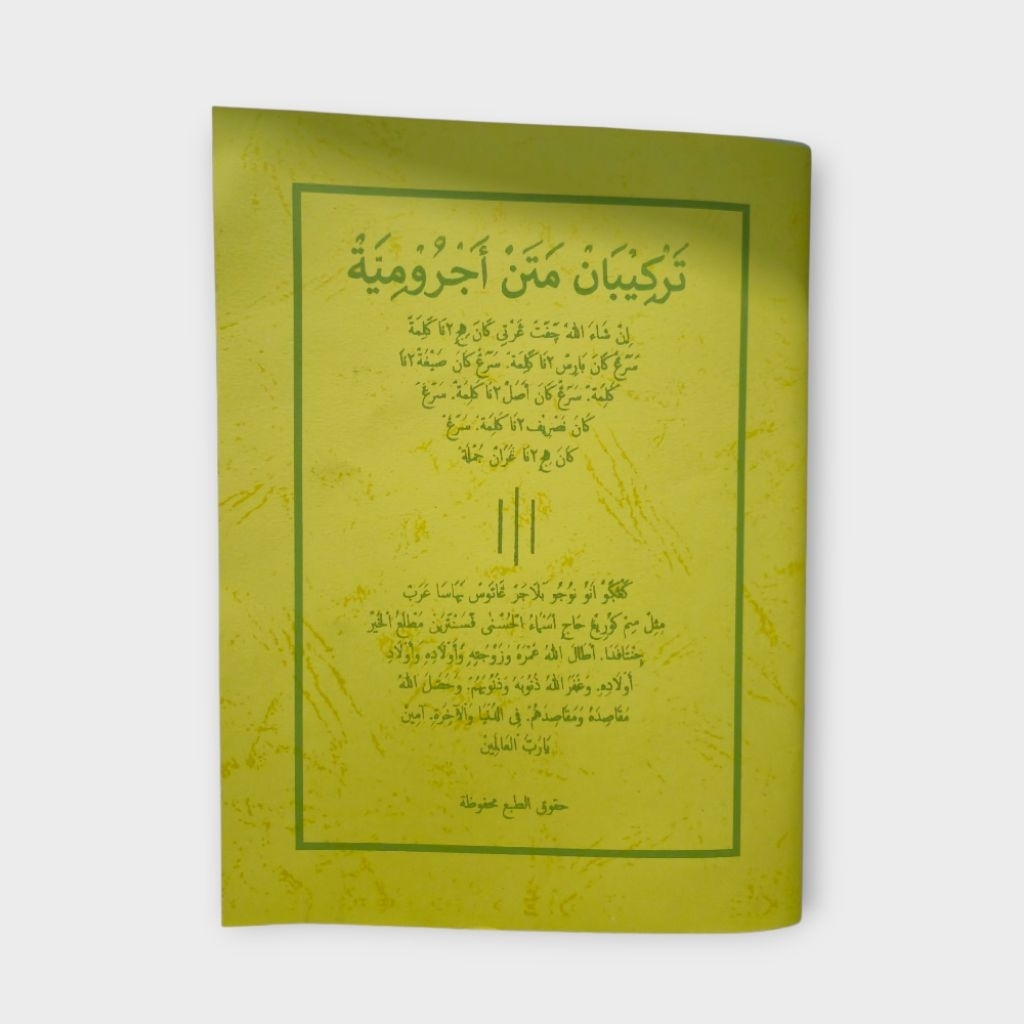 تَرْكِيْبَانْ مَتَنْ أَجْرُوْمِيَّةْ
اِنْ شَاءَ اللهْ چَفَّتْ غَرْتِي كَانَ هِجِ٢نَا كَلِمَةْ
سَرْغْ كَانَ بَارِسْ٢نَا كَلِمَةْ. سَرْغْ كَانَ صِيْغَةْ٢نَا
كَلِمَةْ. سَرْغْ كَانَ أَصَلْ٢نَا كَلِمَةْ. سَرْغْ
كَانَ تَصْرِيْف٢نَا كَلِمَةْ. سَرْغْ
كَانَ هِجِ٢نَا جُمْلَةْ
اَنُوْ نُوْجُو بَلَاجَرْ بَهَاسَا عَرَبْ
حَاجِ أَسْمَاءُ الْحُسْنٰى فَسَنْتَرَيْنْ مَطْلَعُ الْخَيْرِ
أَطَالَ اللهُ عُمْرَهُ وَزَوْجَتِهِ وَأَوْلَادِهِ وَأَوْلَادِ
أَوْلَادِهِ. وَغَفَرَ اللهُ ذُنُوبَهُ وَذُنُوبَهُمْ. وَحَصَّلَ اللهُ
مَقَاصِدَهُ وَمَقَاصِدَهُمْ. فِى الدُّنْيَا وَالْآخِرَةِ. آمِيْن
يَارَبَّ الْعَالَمِيْنَ
حقوق الطبع محفوظة